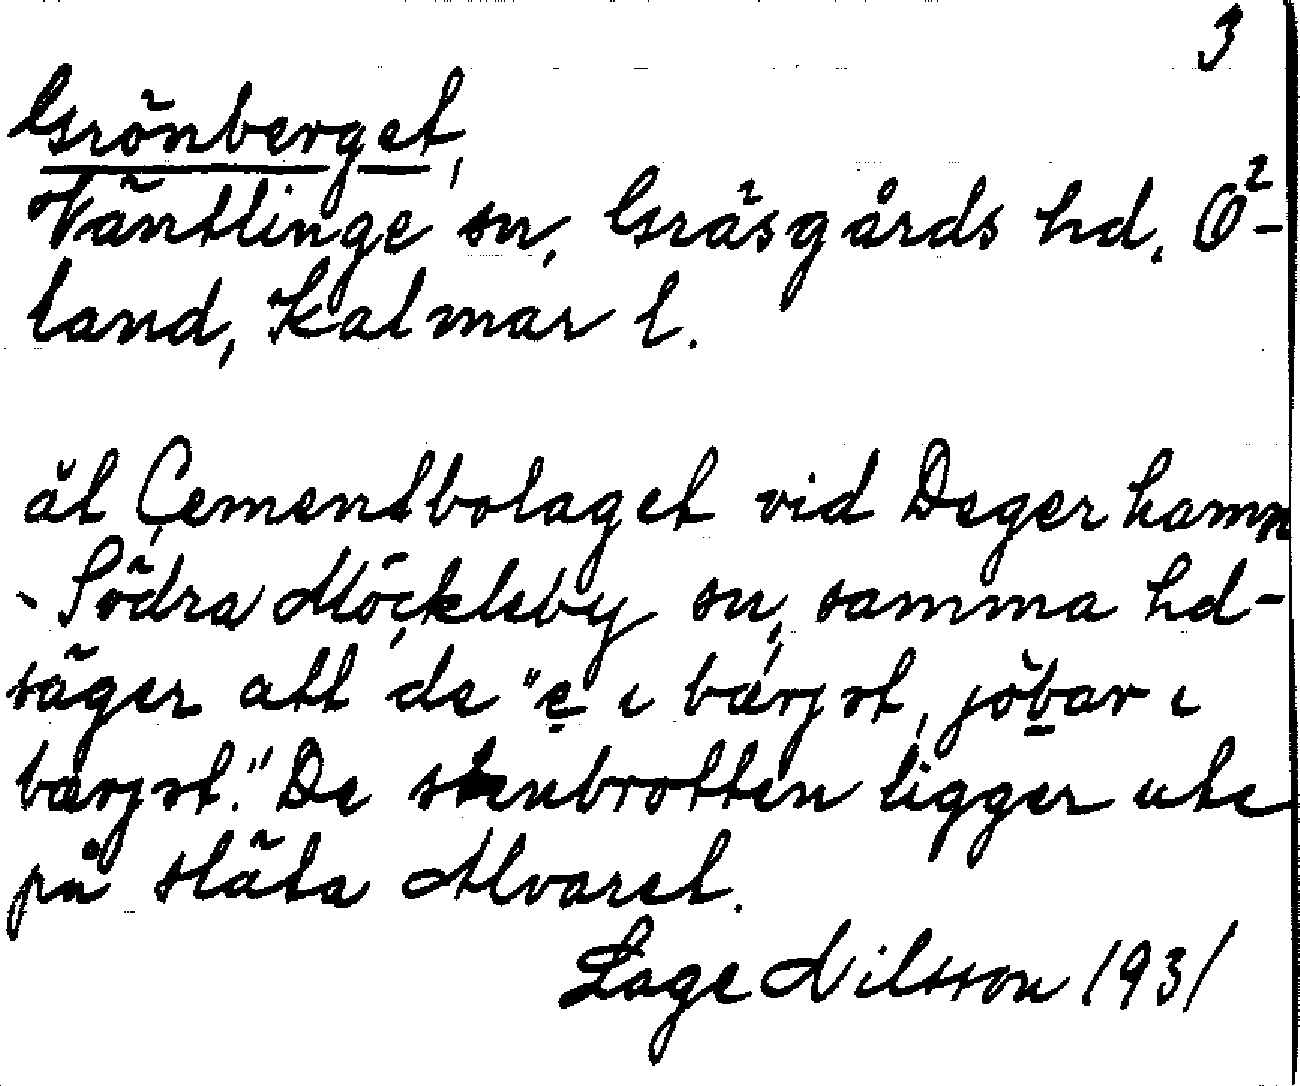 3
Grönberget,
Väntlinge sn, Gräsgårds hd. Ö-
land, Kalmar l.
åt Cementbolaget vid Degerhamn
- Södra Möckleby sn, samma hd -
säger att de "e i bærjət, jöbar i
bærjət." De stenbrotten ligger ute
på släta Alvaret.
Lage Nilsson 1931